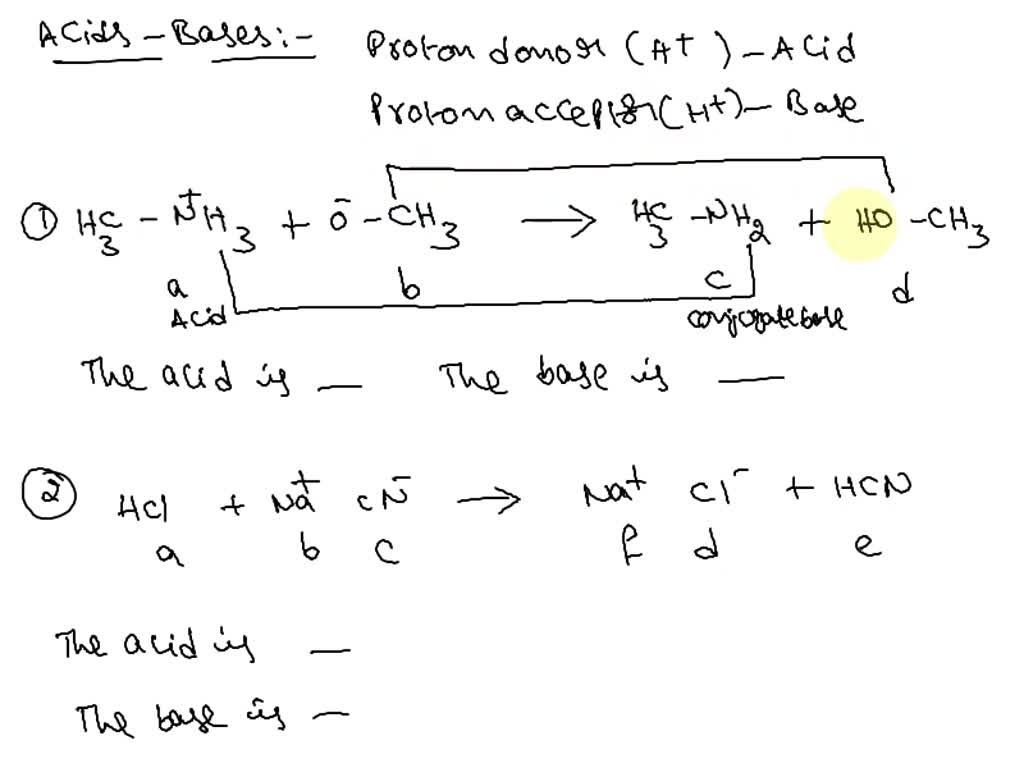 Acids - Bases :- Proton donor (H+) - Acid
Proton acceptor (H+) - Base
① H3C - N+H3 + Ō - CH3 → H3C - NH2 + HO - CH3
a b c d
Acid conjugate base
The acid is — The base is —
② HCl + Na+ CN- → Na+ Cl- + HCN
a b c f d e
The acid is —
The base is —